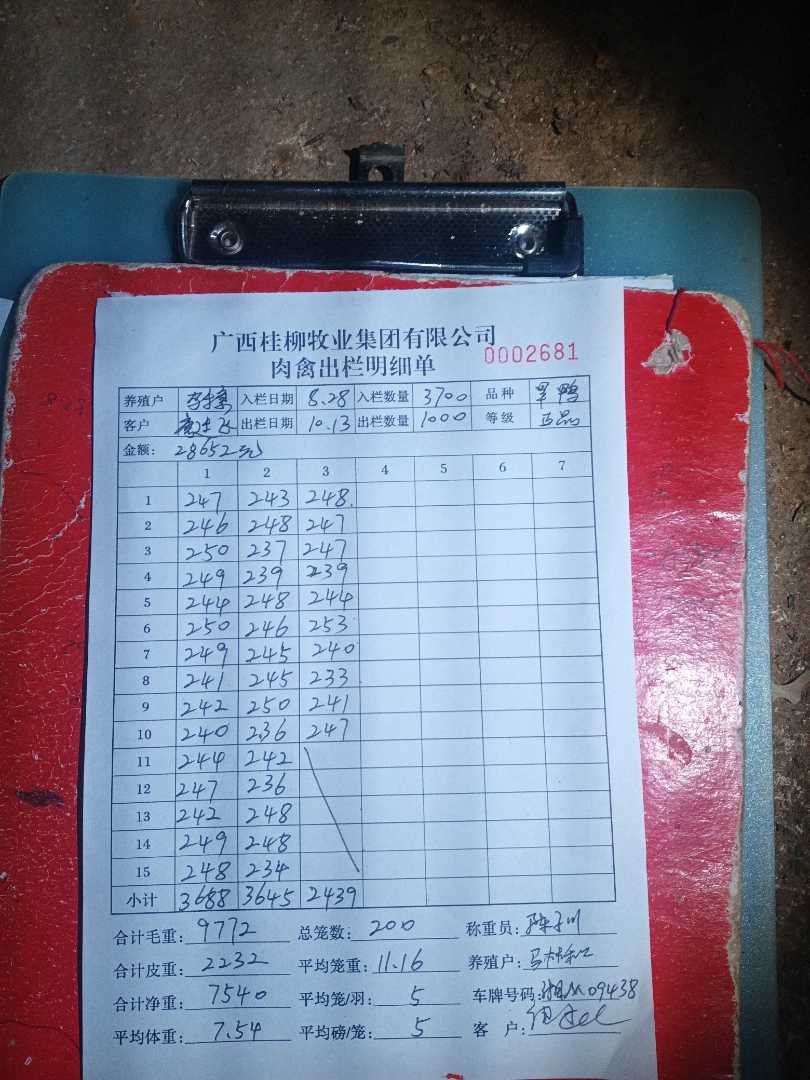 广西桂柳牧业集团有限公司
肉禽出栏明细单 0002681
养殖户 入栏日期 8.28 入栏数量 3700 品种 鸭
客户 出栏日期 10.13 出栏数量 1000 等级 正品
金额: 28652元
1 2 3 4 5 6 7
1 247 243 248
2 246 248 247
3 250 237 247
4 249 239 239
5 244 248 244
6 250 246 253
7 249 245 240
8 241 245 233
9 242 250 241
10 240 236 247
11 244 242
12 247 236
13 242 248
14 249 248
15 248 234
小计 3688 3645 2439
合计毛重: 9772 总笼数: 200 称重员:
合计皮重: 2232 平均笼重: 11.16 养殖户:
合计净重: 7540 平均笼/羽: 5 车牌号码: 09438
平均体重: 7.54 平均磅/笼: 5 客 户: